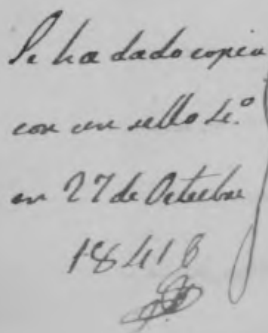 Se ha dado copia
con un sello 4.º
en 27 de Octubre
1841